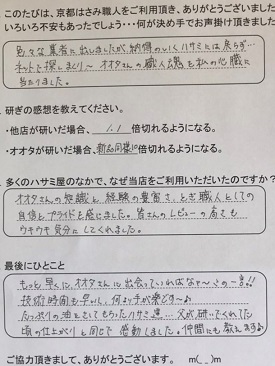 このたびは、京都はさみ職人をご利用頂き、ありがとうございました
いろいろ不安もあったでしょう・・・何が決め手でお声掛け頂きました
色々な業者に出しましたが、納得のいくハサミには戻らず…
ネットで探しまくり〜 オオタさんの職人魂を私の心臓に
当たりました。
研ぎの感想を教えてください。
・他店が研いだ場合、 1.1 倍切れるようになる。
・オオタが研いだ場合、新品同様 倍切れるようになる。
多くのハサミ屋のなかで、なぜ当店をご利用いただいたのですか?
オオタさんの知識と経験の豊富さ、とぎ職人としての
自信とプライドを感じました。皆さんのレビューの高さも
ウキウキ気分にしてくれました。
最後にひとこと
もっと早くに、オオタさんに出会っていればなァ〜 の一言!!
技術時間も早いし、何より手が楽です〜
たっぷりの油をさしてもらったハサミ達… 父が研いでくれてた
頃の仕上がりと同じで 感動しました。仲間にも教えます
ご協力頂きまして、ありがとうございます。 m(_ _)m